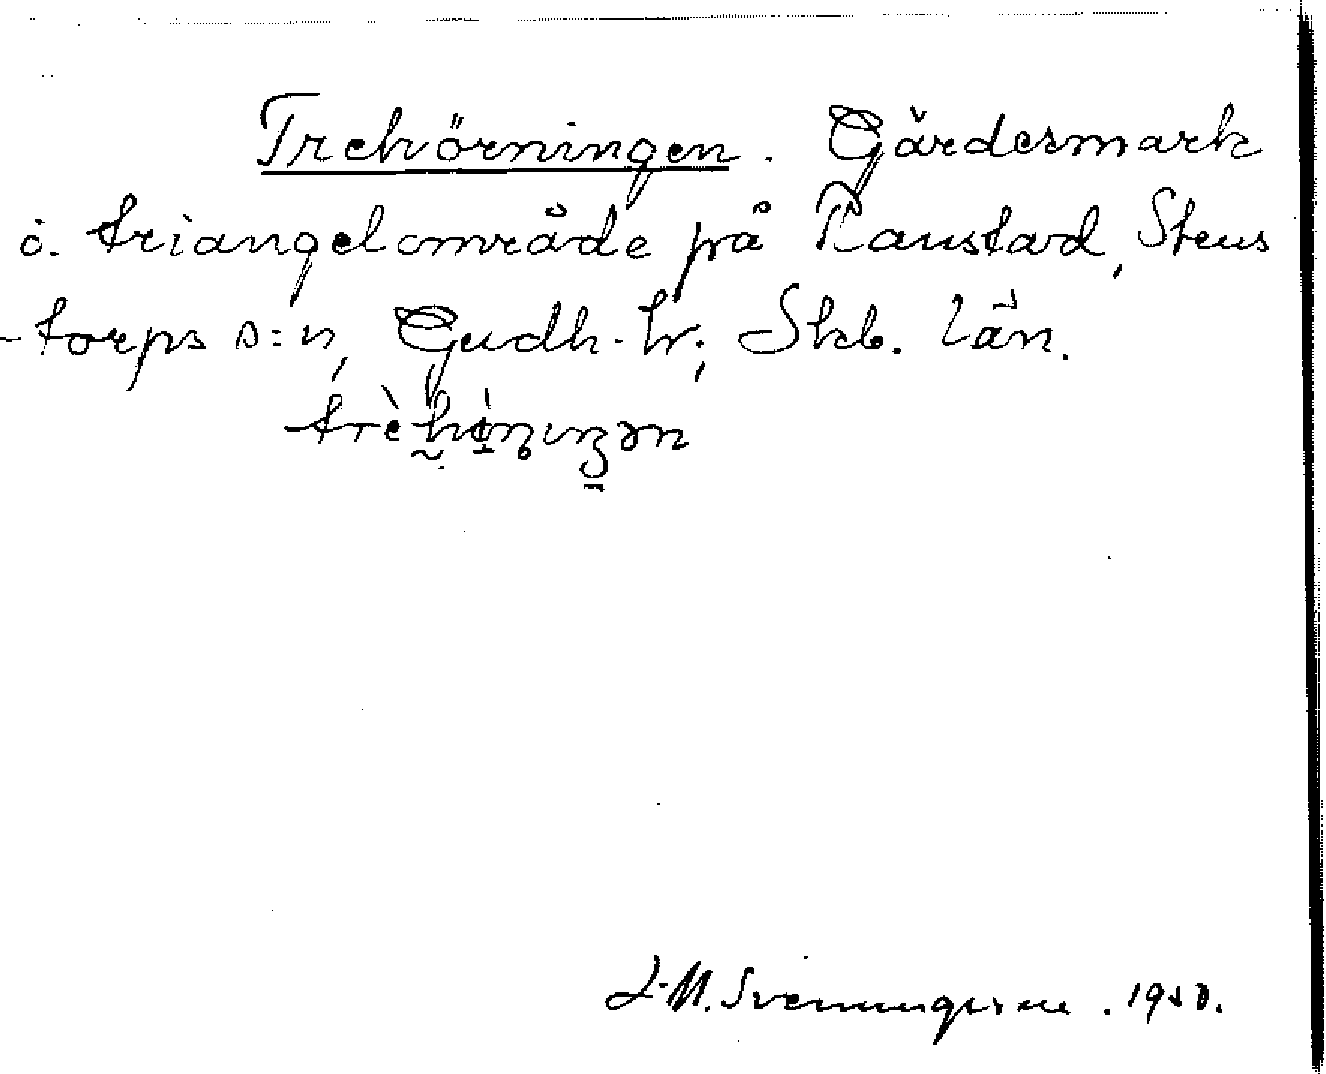 Trehörningen. Gärdesmark
ö. triangelområde på Ranstad, Stens
-torps s:n, Gudh. hr; Skb. län.
L.M. Svenungsson. 19